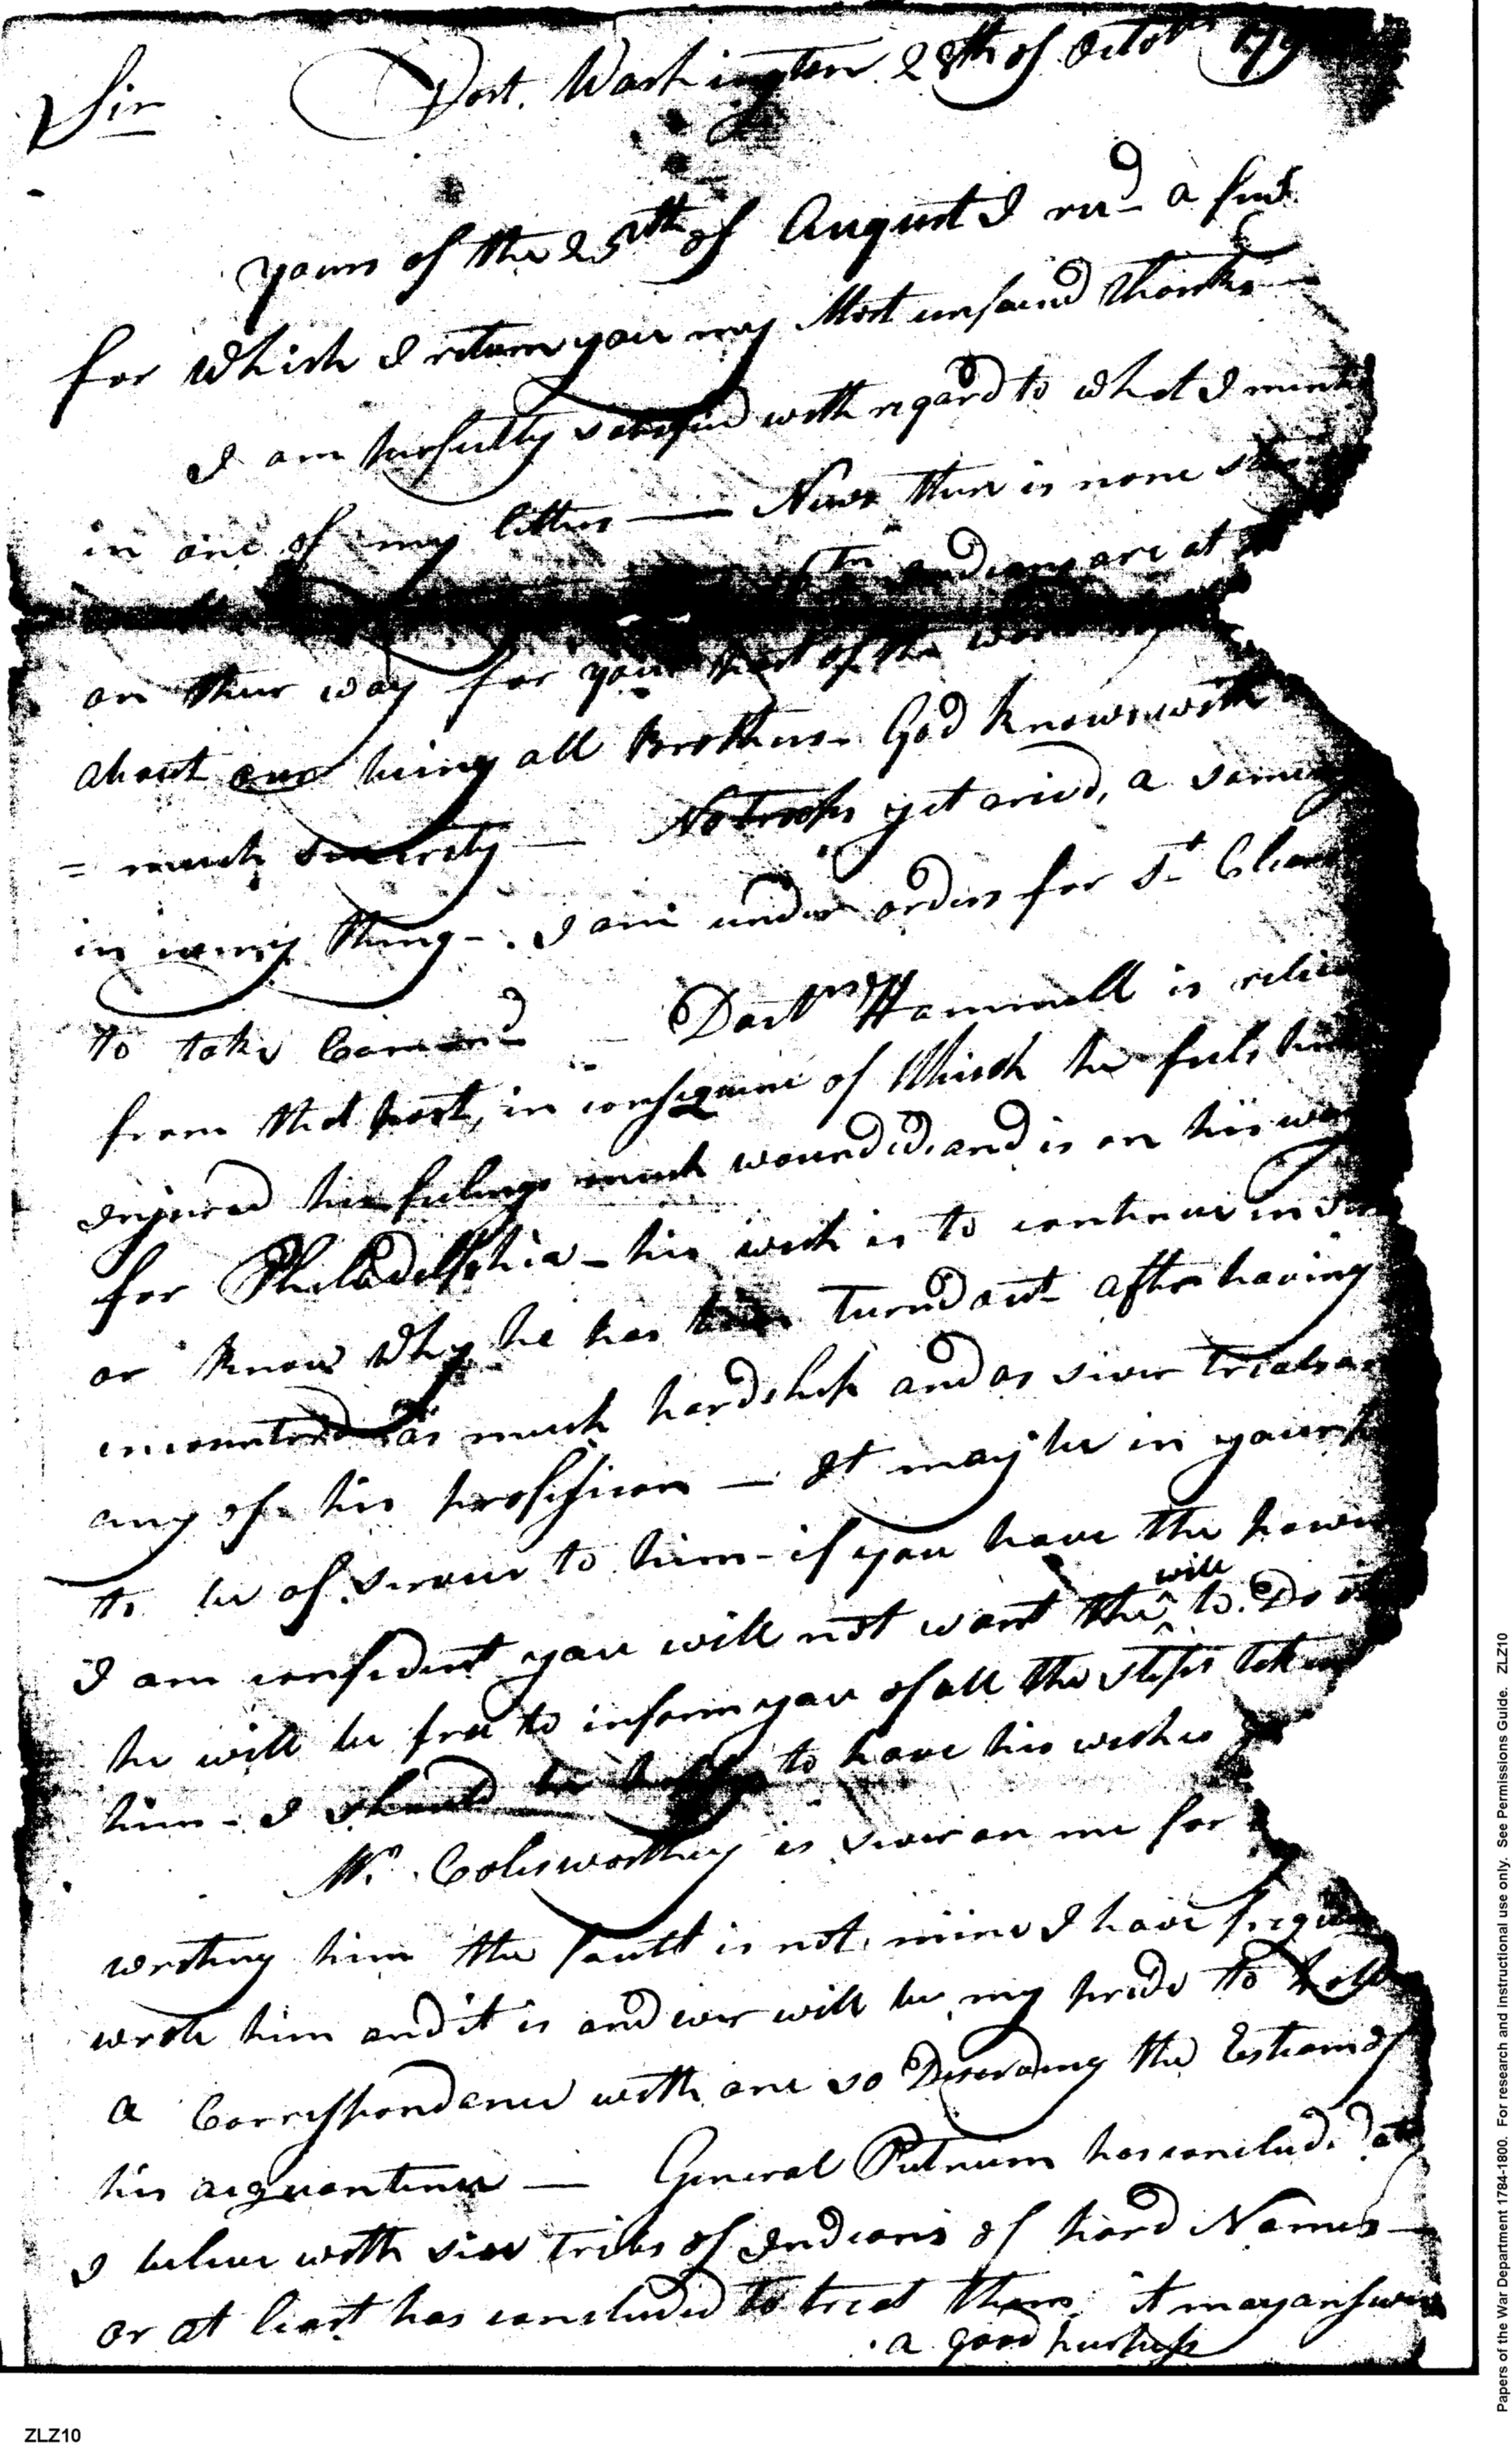 Sir Fort Washington 28th of Octobr 179
yours of the 25th of August I recd a few
for which I return you my Most unfaind thanks
I am perfectly satisfied with regard to what I
in one of my letters — News there is none
Indians are at
on their way for your part of the
about our being all Brothers God knows with
= much sincerity — No troops yet arived, a
in every thing - I am under orders for St Clair
to take Comand — Doctr Hammell is
from that post, in consequence of Which he feels
Injured his feelings much wounded, and is on his way
for Philadelphia - his wish is to continue in
or know Why he has been turnd out after having
encountered as much hardship and as sever trials as
any of his profession — It may be in your
to be of service to him - if you have the
I am confident you will not want the ^will to Do it
he will be free to inform you of all the steps taken
him - I should be happy to have his wishes
Mr. Colesworthey is sever on me for
writing him the fault is not mine I have
wrote him and it is and ever will be my pride to hold
a Correspondence with one so Deserving the Esteem of
his acquantence — General Putnum has conclud.d
I believe with six tribes of Indians of hard Names —
or at least has concluded to treat them it may answer
a good purpose
Papers of the War Department 1784-1800. For research and instructional use only. See Permissions Guide. ZLZ10
ZLZ10